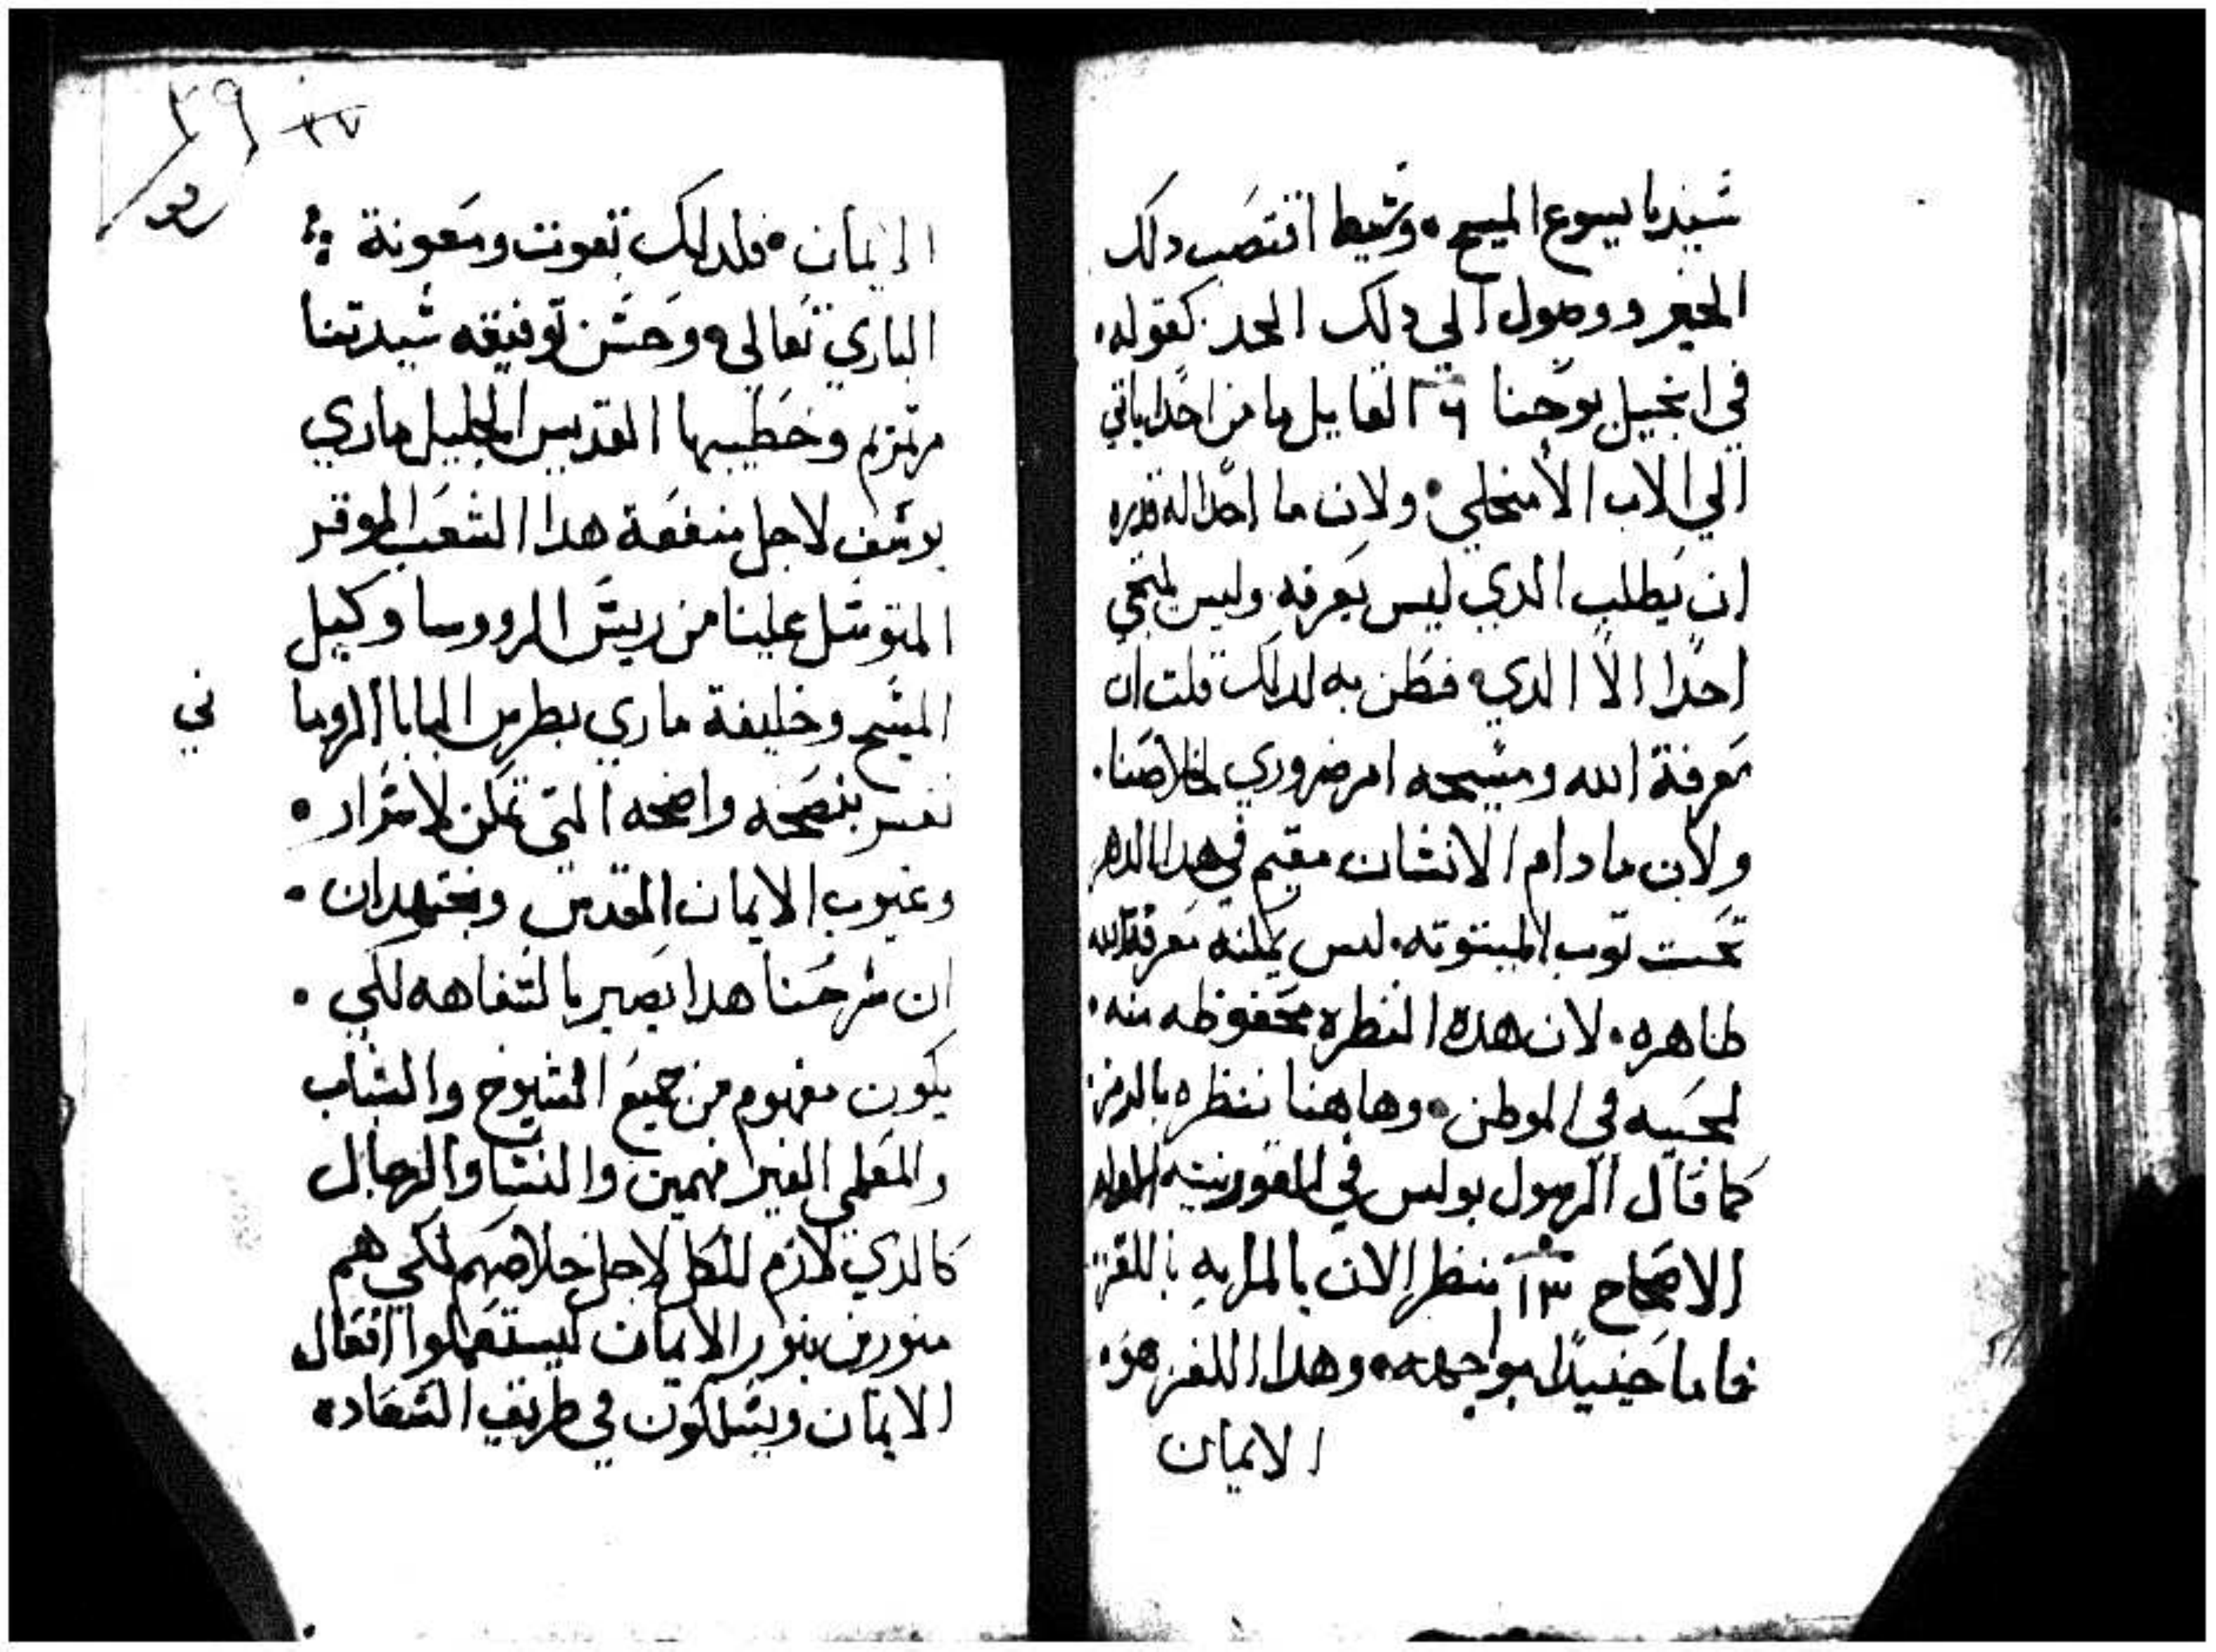 سيدنا يسوع المسيح • وسيط اقتصب دلك
المخبر ووصول الي دلك الحد كقوله •
في انجيل يوحنا ٦ القايل ما من احدا ياتي
الي الاب الا منجلي • ولان ما احدا له قدره
ان يطلب الدي ليس يعرفه وليس ينجي
احدا الا الدي فطن به لدلك قلت ان
معرفة الله ومسيحه امر ضروري لخلاصنا •
ولان ما دام الانسان مقيم في هدا الدهر
تحت توب الميتوته • ليس يمكنه معرفة الله
ظاهره • لان هده النظره محفوظه منه •
لمحبيه في الموطن • وها هنا ننظره بالرمز
كما قال الرسول بولس في القورنتيه الاوله
الاصحاح ١٣ ننظر الان بالمرايه باللغز
فاما حينيدا مواجهه • وهدا اللغز هو •
الايمان
٣٩ ٣٧
الايمان • فلدلك بقوت ومعونة
الباري تعالي وحسن توفيقه سيدتنا
مرتمريم وخطيبها القديس الجليل ماري
يوسف لاجل منفعة هدا الشعب الموقر
المتوسل علينا من ريس الروسا وكيل
المسيح وخليفة ماري بطرس البابا الروما
ني
نفسر بنصحه واضحه التي تمكن لاسرار •
وغيوب الايمان المقدس ونجتهد ان •
ان شرحنا هدا يصير بالتفاهه لكي •
يكون مفهوم من جميع الشيوخ والشباب
والمعلمي الغير فهمين والنسا والرجال
كالدي لازم للكل لاجل خلاصهم لكي هم
منورين بنور الايمان ليستعملوا افعال
الايمان ويسلكون في طريق السعاده